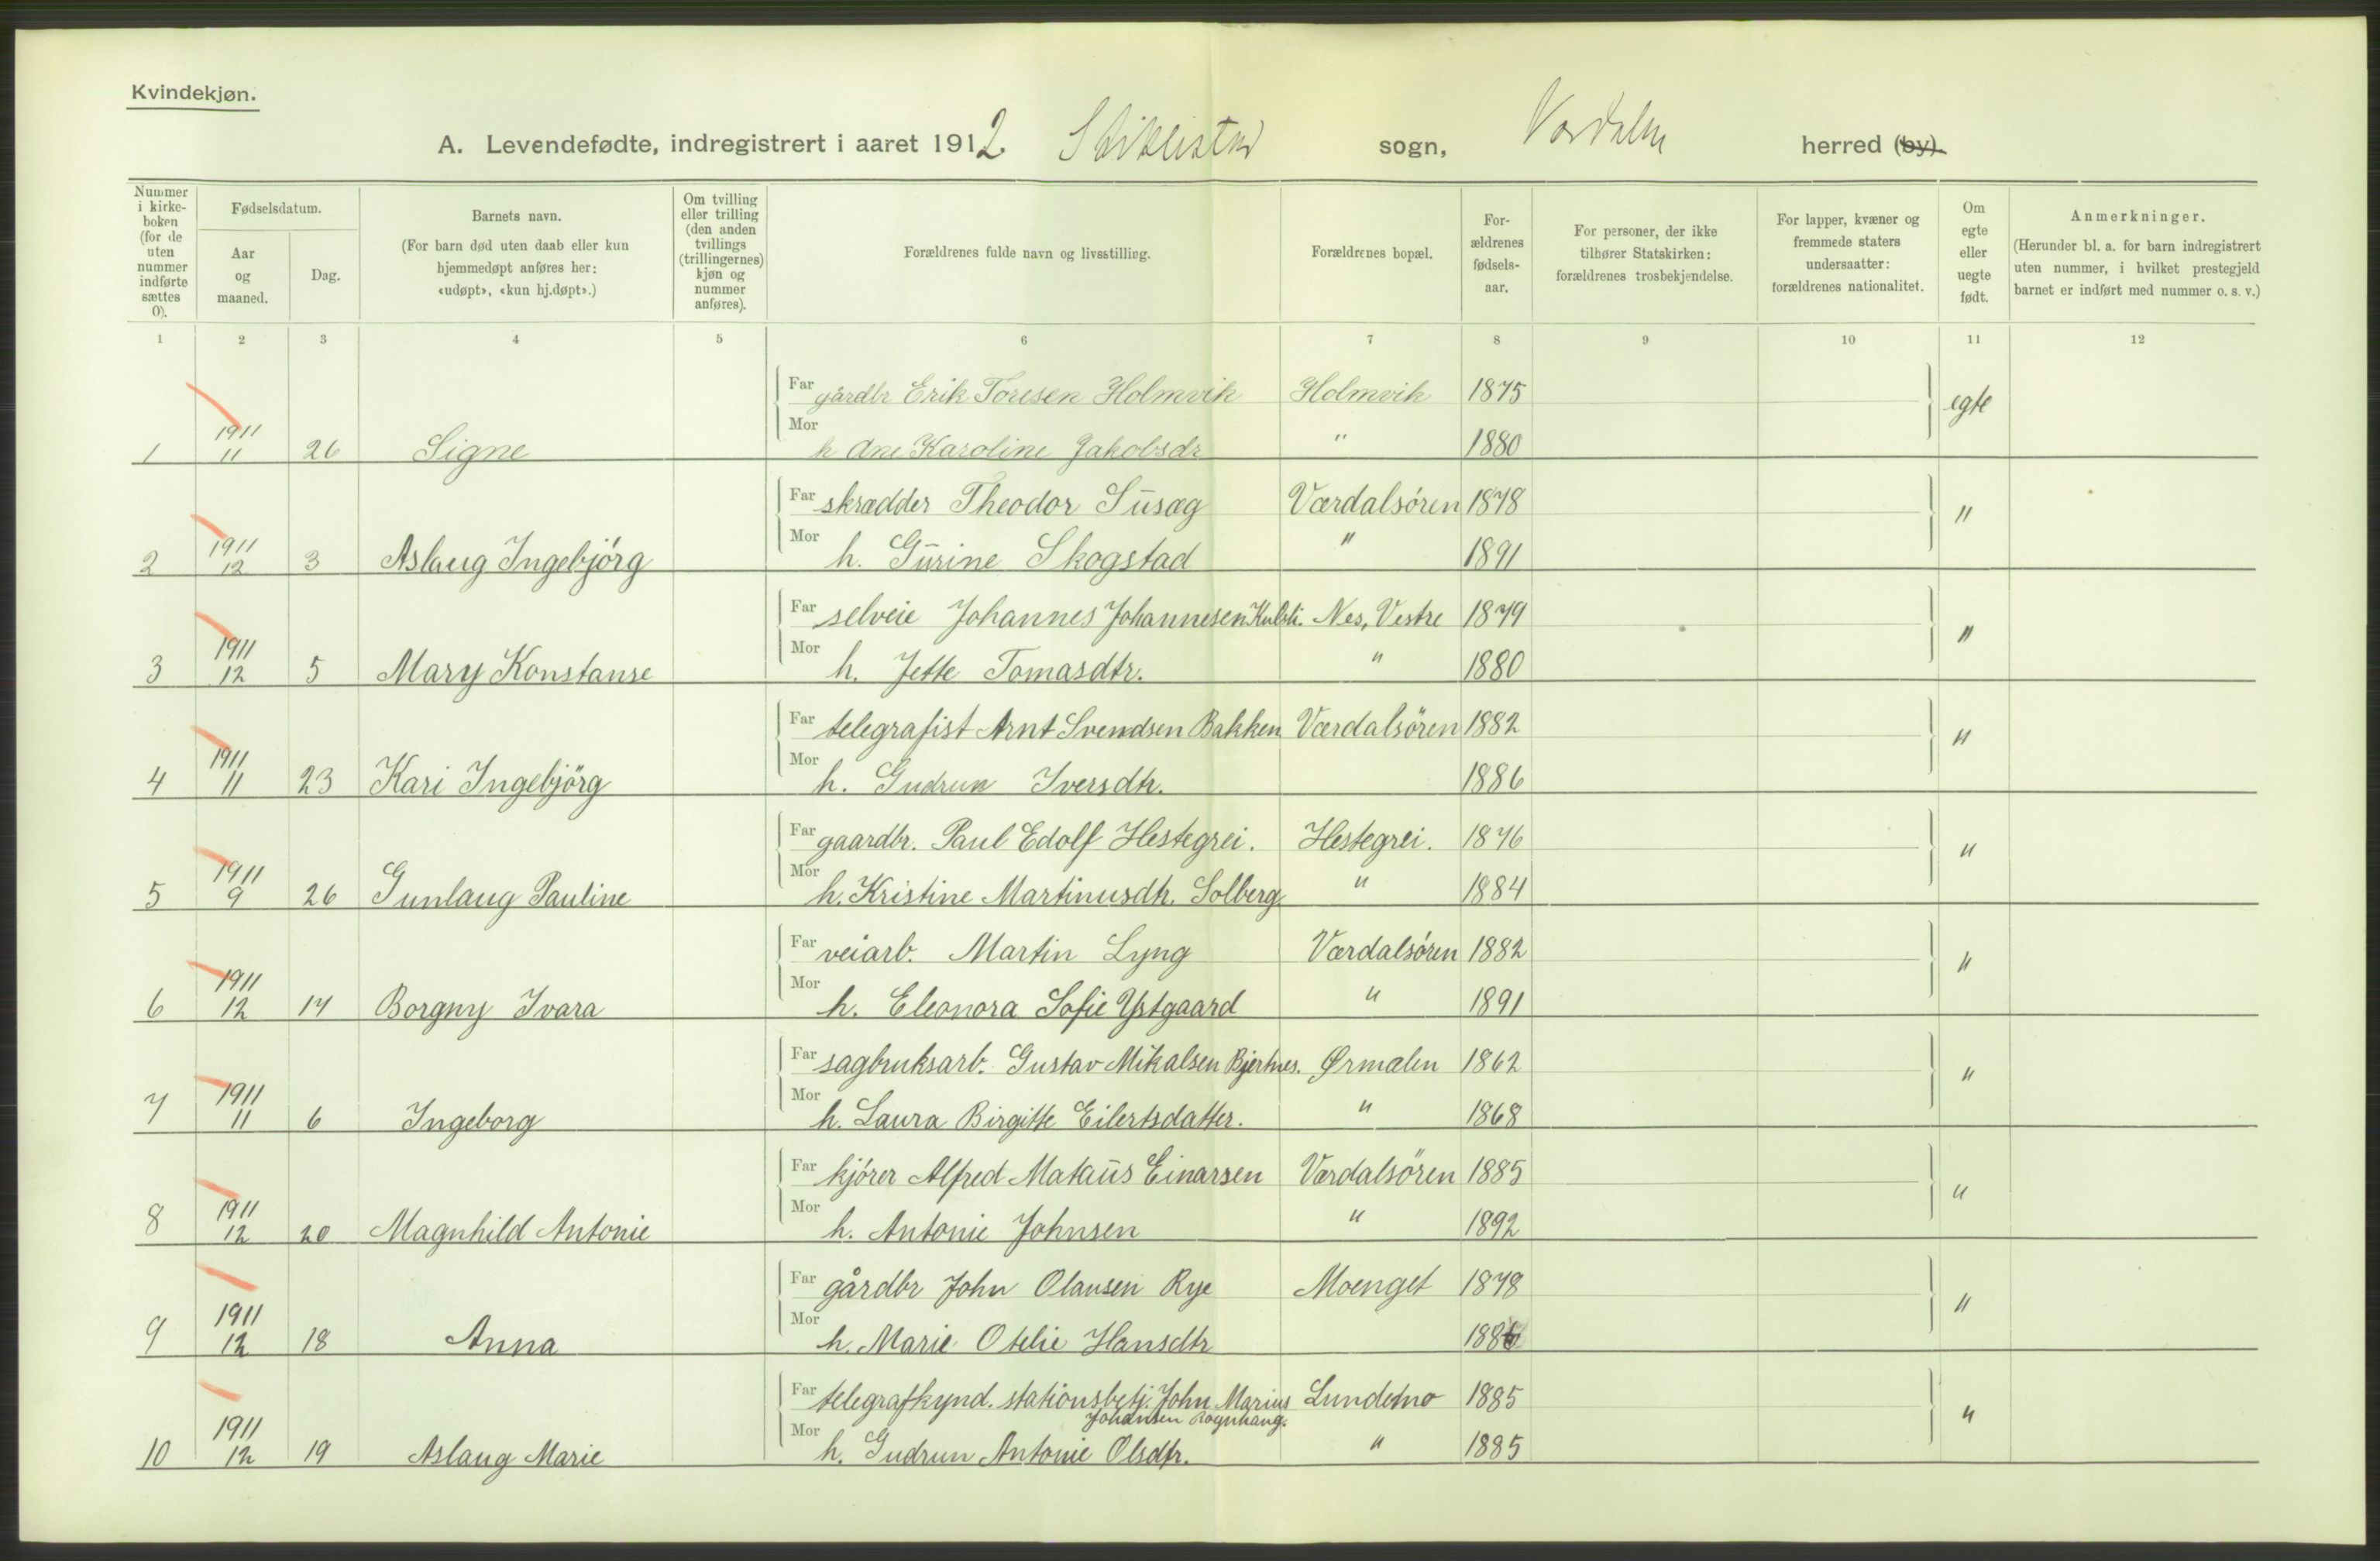 Kvindekjøn.
A. Levendefødte, indregistrert i aaret 1912. Stiklestad sogn, Værdalen herred (by).
Nummer i kirkeboken (for de uten nummer indførte sættes 0).
Fødselsdatum.
Aar og maaned.
Dag.
Barnets navn.
(For barn død uten daab eller kun hjemmedøpt anføres her: «udøpt», «kun hj.døpt».)
Om tvilling eller trilling (den anden tvillings (trillingernes) kjøn og nummer anføres).
Forældrenes fulde navn og livsstilling.
Forældrenes bopæl.
Forældrenes fødselsaar.
For personer, der ikke tilhører Statskirken: forældrenes trosbekjendelse.
For lapper, kvæner og fremmede staters undersaatter: forældrenes nationalitet.
Om egte eller uegte født.
Anmerkninger.
(Herunder bl. a. for barn indregistrert uten nummer, i hvilket prestegjeld barnet er indført med nummer o. s. v.)
1 2 3 4 5 6 7 8 9 10 11 12
Far gårdbr Erik Toresen Holmvik Holmvik 1875 egte
1 1911 11 26 Signe Mor h Ane Karoline Jakobsdr " 1880
Far skrædder Theodor Susæg Værdalsören 1878 "
2 1911 12 3 Aslaug Ingebjörg Mor h. Gurine Skogstad " 1891
Far selveie Johannes Johannesen Nes, Vestre 1879 "
3 1911 12 5 Mary Konstanse Mor h. Jette Tomasdtr. " 1880
Far telegrafist Arnt Svendsen Bakken Værdalsören 1882 "
4 1911 11 23 Kari Ingebjörg Mor h. Gudrun Iversdtr. 1886
Far gaardbr. Paul Edolf Hestegrei. Hestegrei. 1876 "
5 1911 9 26 Gunlaug Pauline Mor h. Kristine Martinusdtr. Solberg " 1884
Far veiarb. Martin Lyng Værdalsören 1882 "
6 1911 12 17 Borgny Ivara Mor h. Eleonora Sofie Ystgaard " 1891
Far sagbruksarb. Gustav Mikalsen Bjertnes. Ørmælen 1862 "
7 1911 11 6 Ingeborg Mor h. Laura Birgitte Eilertsdatter. " 1868
Far kjörer Alfred Mataus Einarsen Værdalsören 1885 "
8 1911 12 20 Magnhild Antonie Mor h. Antonie Johnsen " 1892
Far gårdbr John Olausen Rye Moenget 1878 "
9 1911 12 18 Anna Mor h. Marie Otelie Hansdtr
Far telegrafkynd. stationsbetj. John Marius Lundemo 1885 "
Johansen Rognhaug.
10 1911 12 19 Aslaug Marie Mor h. Gudrun Antonie Olsdtr. " 1885